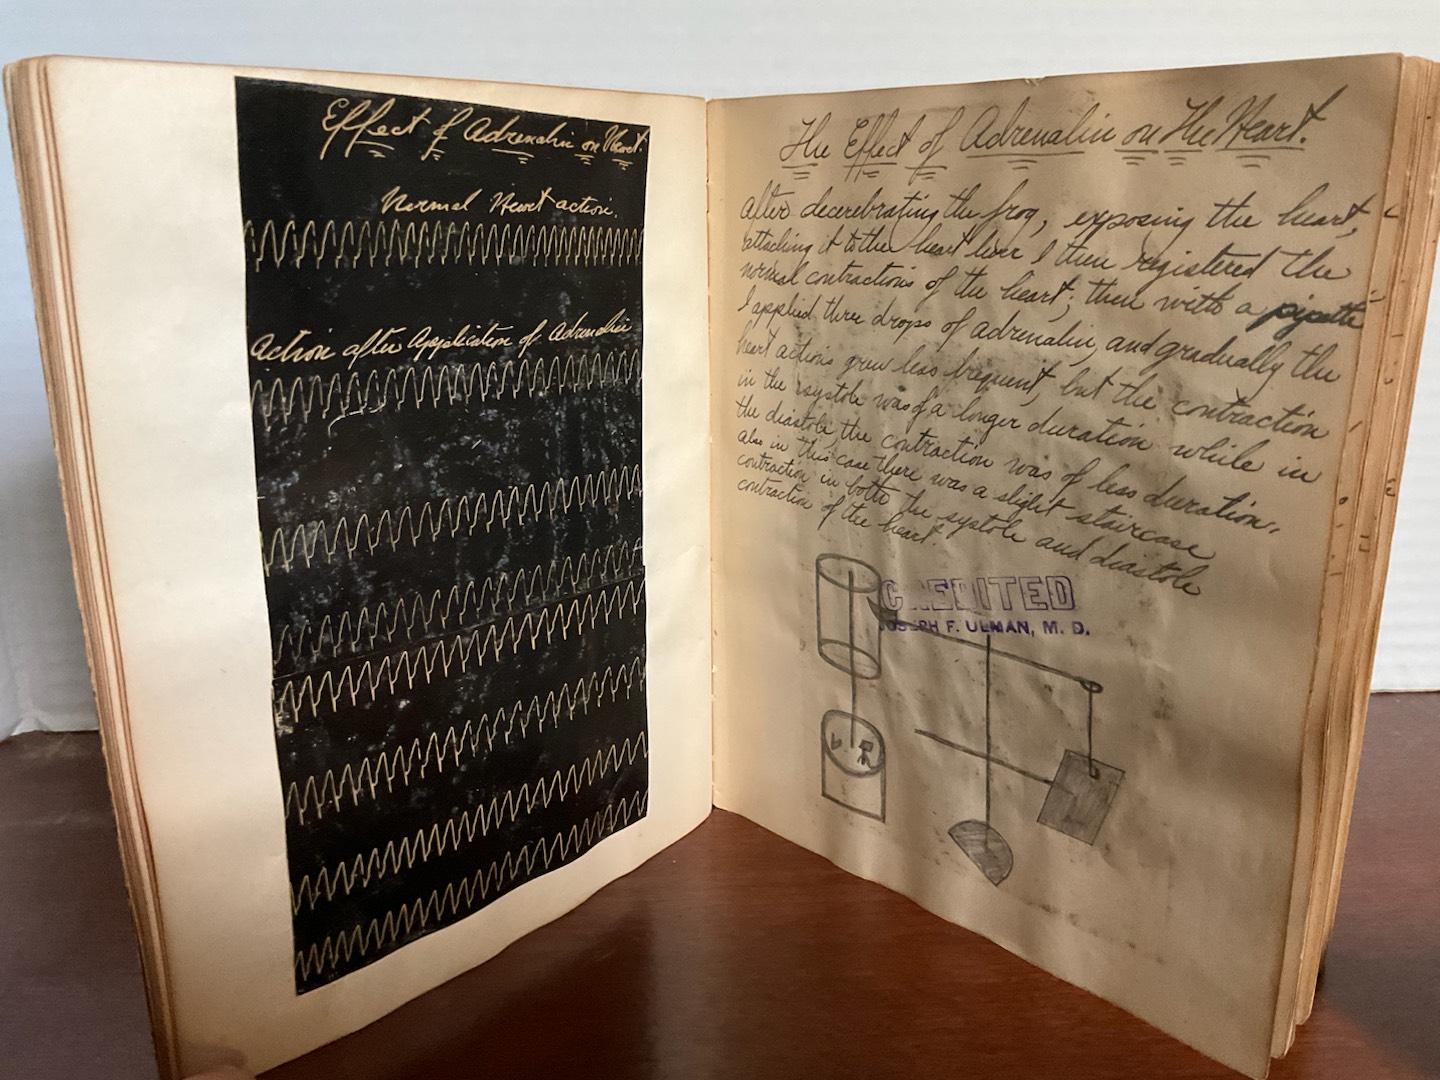 Effect of Adrenalin on Heart.
Normal Heart action.
Action after Application of Adrenalin
The Effect of Adrenalin on The Heart.
After decerebrating the frog, exposing the heart,
attaching it to the heart lever I then registered the
normal contractions of the heart; then with a pipette
I applied three drops of adrenalin, and gradually the
heart actions grew less frequent, but the contraction
in the systole was of a longer duration while in
the diastole, the contraction was of less duration.
also in this case there was a slight staircase
contraction in both the systole and diastole
contraction of the heart.
CREDITED
JOSEPH F. ULMAN, M. D.